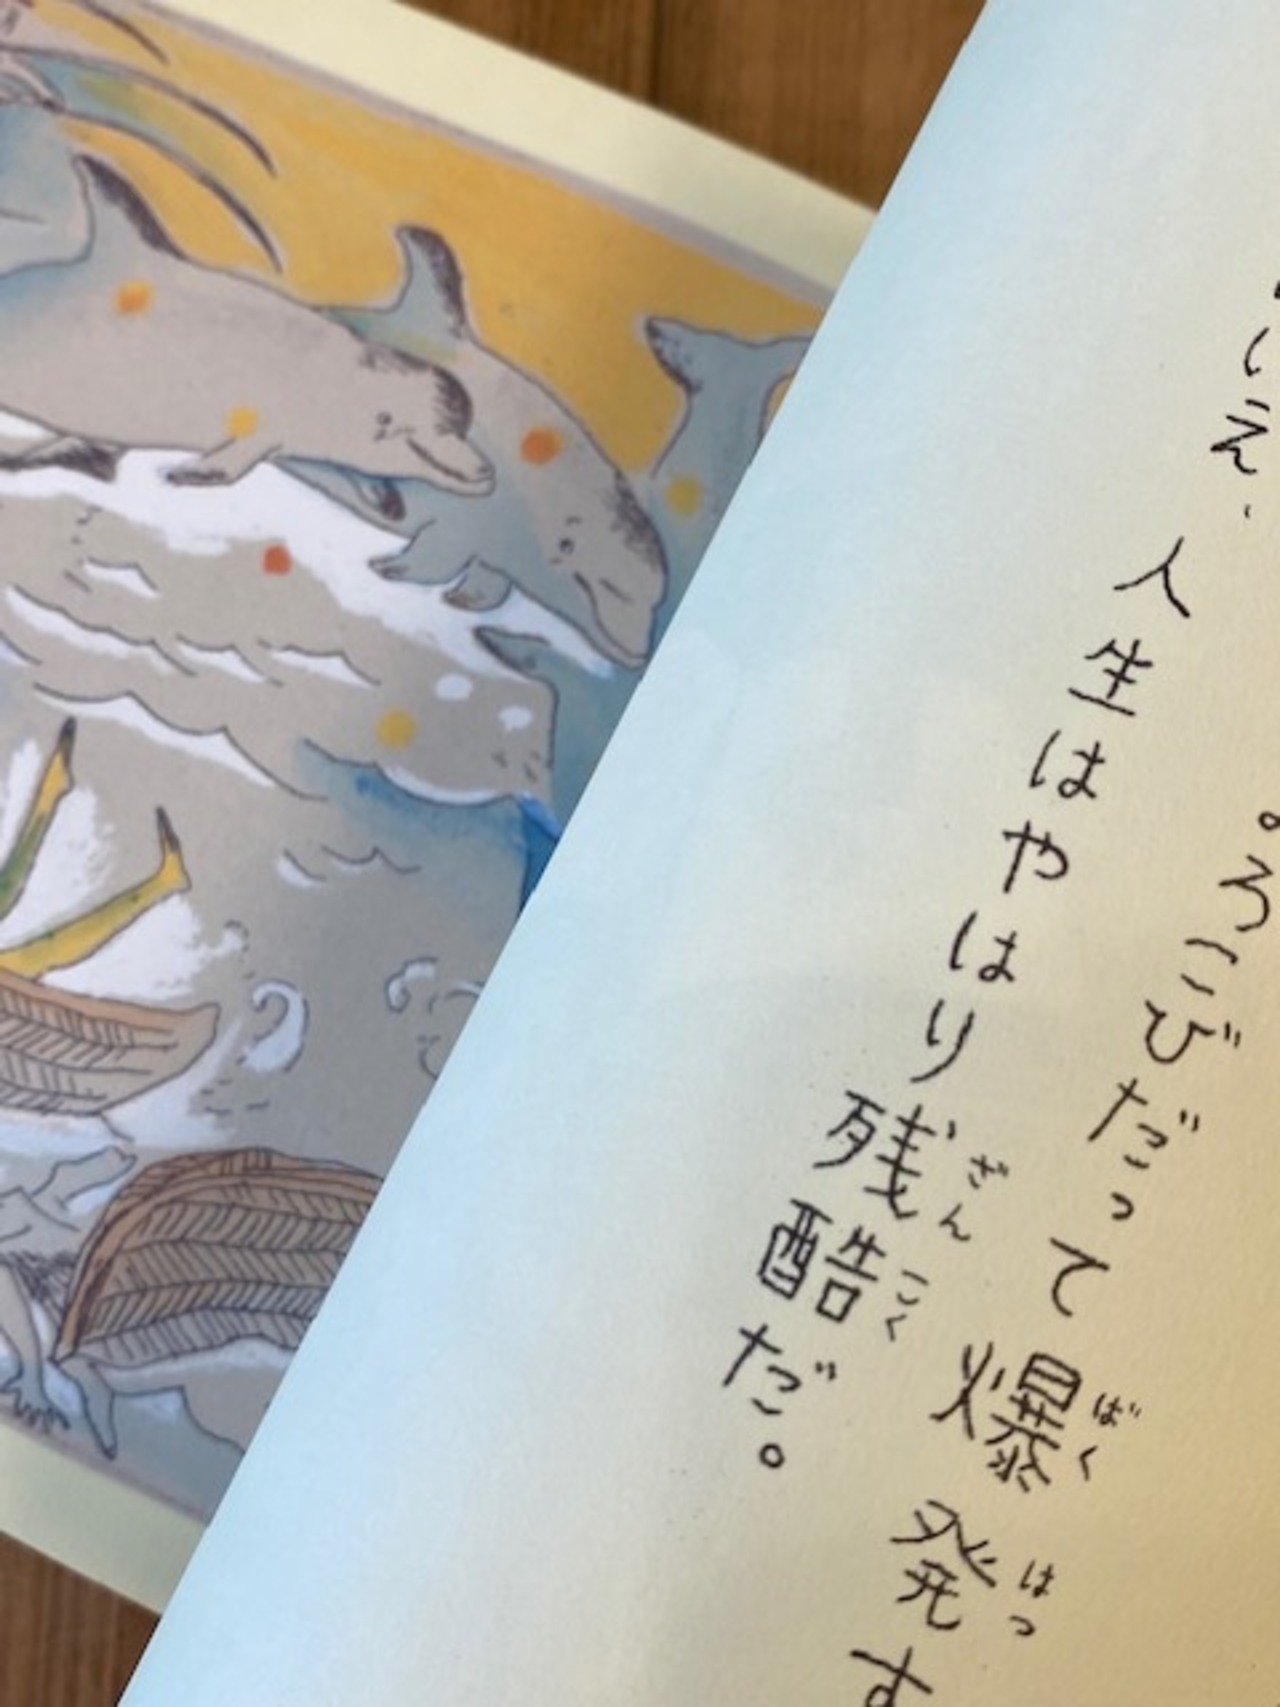 ろこびだって爆発す
ばくはつ
いえ、人生はやはり残酷だ。
ざんこく